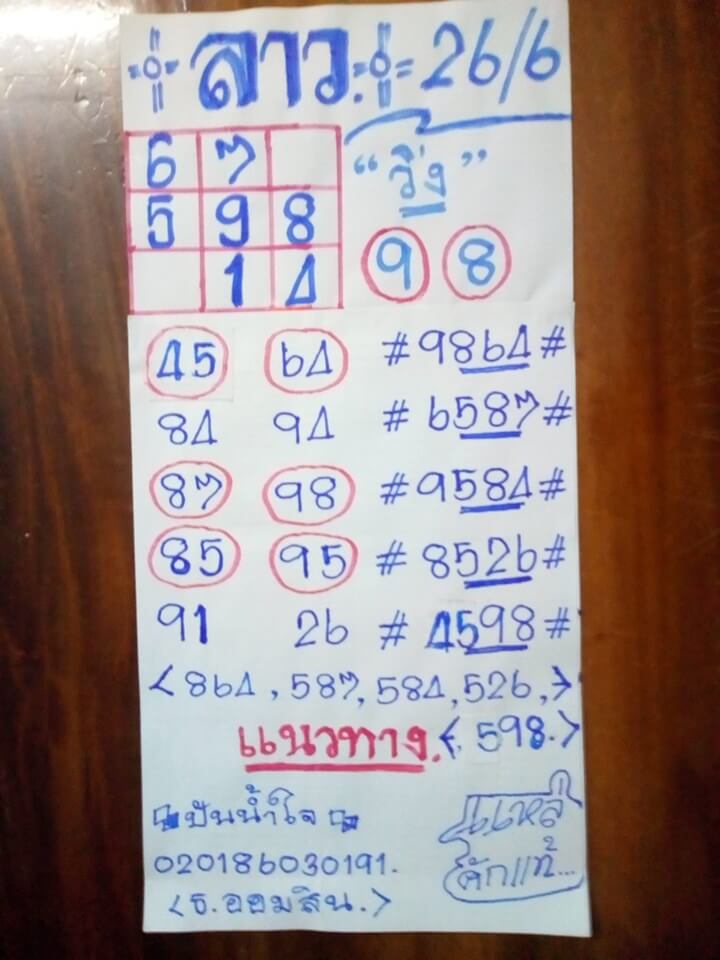 ลาว 26/6
6 7
5 9 8
1 4
"วิ่ง"
9 8
45 64 #9864#
84 94 #6587#
87 98 #9584#
85 95 #8526#
91 26 #4598#
<864, 587, 584, 526,>
แนวทาง. <598.>
ปันน้ำใจ
020186030191.
<ธ.ออมสิน.>
คักแท้...